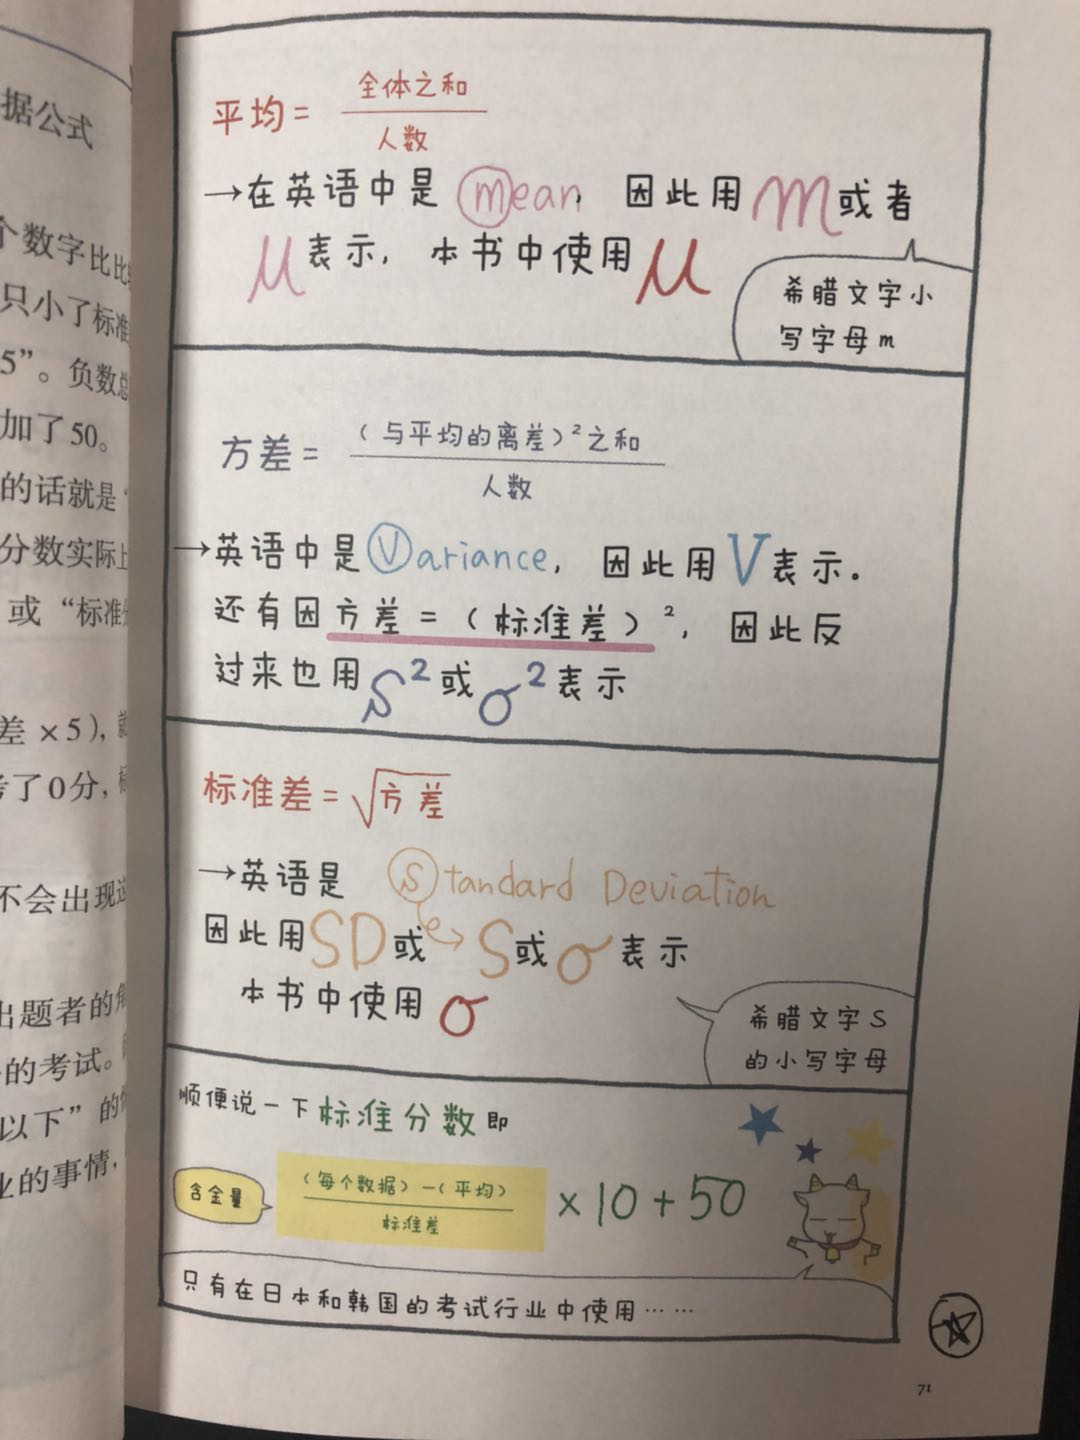 据公式
个数字比比
只小了标准
5”。负数总
加了50。
的话就是“
分数实际上
或“标准分
差×5），就
考了0分，标
不会出现这
出题者的角
的考试。
以下”的
业的事情，
平均=
全体之和
人数
→在英语中是mean，因此用m或者
μ表示，本书中使用μ
希腊文字小
写字母m
方差=
（与平均的离差）²之和
人数
→英语中是Variance，因此用V表示。
还有因方差=（标准差）²，因此反
过来也用s²或σ²表示
标准差=√方差
→英语是 Standard Deviation
因此用SD或S或σ表示
本书中使用σ
希腊文字S
的小写字母
顺便说一下标准分数即
含金量
（每个数据）-（平均）
标准差
×10+50
只有在日本和韩国的考试行业中使用……
71